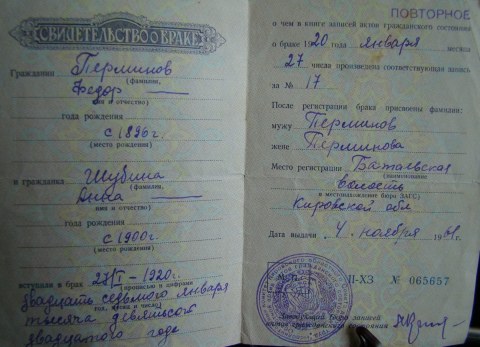 СВИДЕТЕЛЬСТВО О БРАКЕ
Гражданин Перминов
(фамилия,
Федор
имя и отчество)
года рождения
с 1896 г.
(место рождения)
и гражданка Шубина
(фамилия,
Анна
имя и отчество)
года рождения
с 1900 г.
(место рождения)
вступили в брак 27/I – 1920 г.
(прописью и цифрами
двадцать седьмого января
год, месяц и число)
тысяча девятьсот
двадцатого года
ПОВТОРНОЕ
о чем в книге записей актов гражданского состояния
о браке 1920 года января месяца
27 числа произведена соответствующая запись
за № 17
После регистрации брака присвоены фамилии:
мужу Перминов
жене Перминова
Место регистрации
(наименование
волость
и местонахождение бюро ЗАГС)
Кировской обл
Дата выдачи 4 ноября
II-ХЗ № 065657
Заведующий бюро записей
актов гражданского состояния